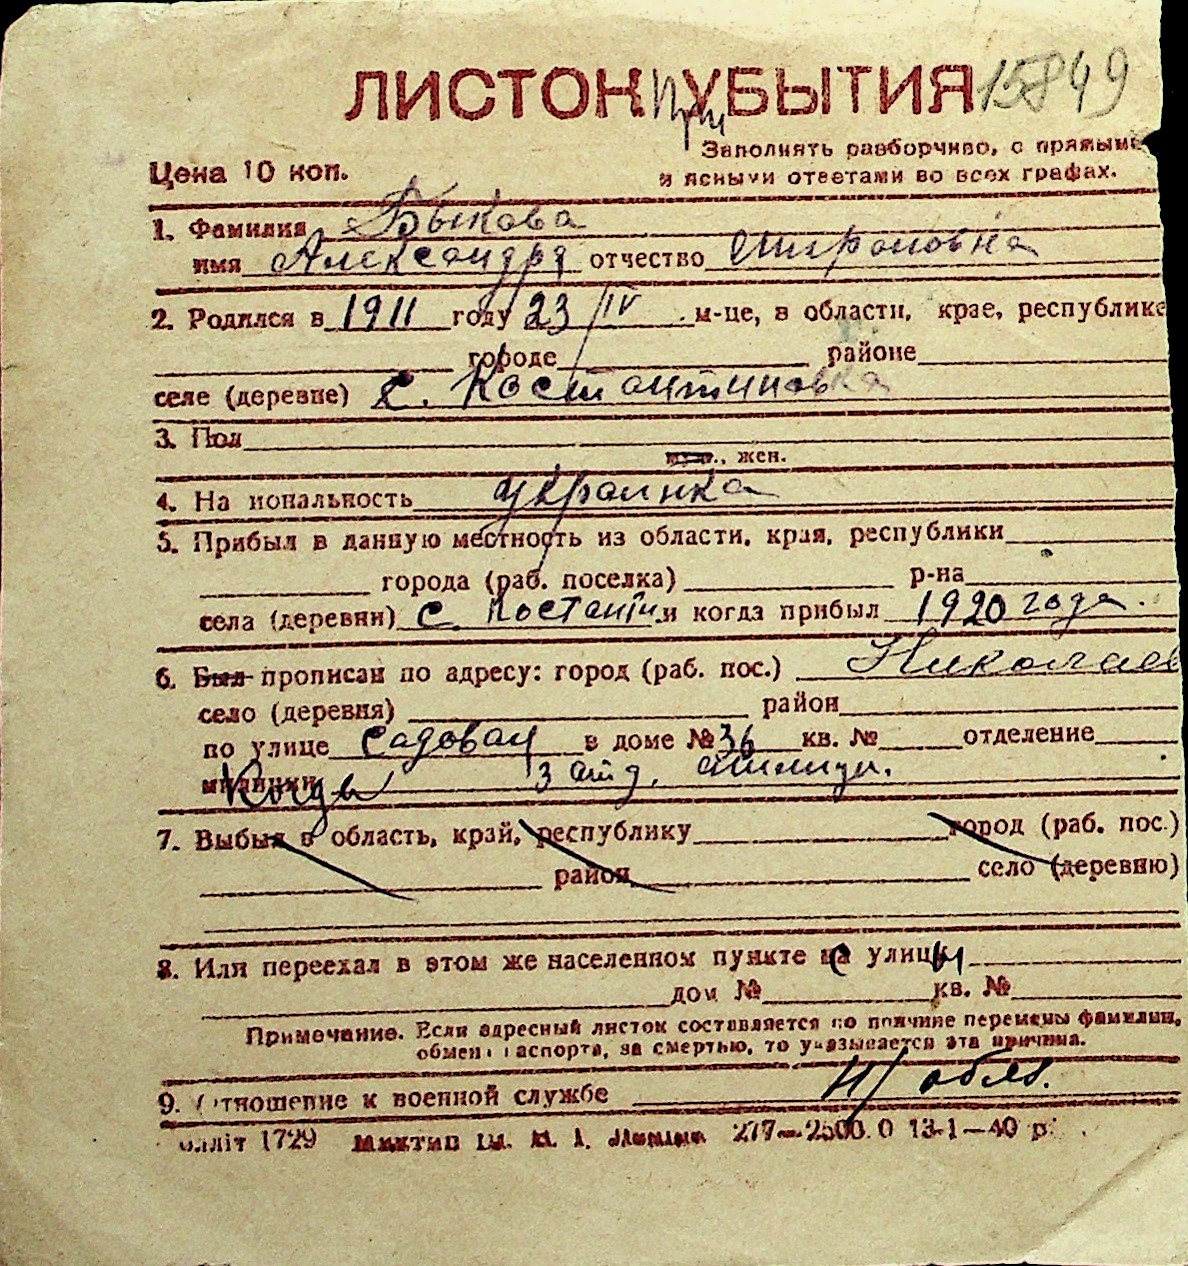 ЛИСТОК при УБЫТИЯ 15849
Заполнять разборчиво, с прямыми
Цена 10 коп. и ясными ответами во всех графах.
1. Фамилия Быкова
имя Александра отчество Мироновна
2. Родился в 1911 году 23/IV м-це, в области, крае, республике
городе районе
селе (деревне) с. Костантиновка
3. Пол
муж., жен.
4. На иональность украинка
5. Прибыл в данную местность из области, края, республики
города (раб. поселка) р-на
села (деревни) с. Костанти и когда прибыл 1920 года.
6. Был прописан по адресу: город (раб. пос.) Николаев
село (деревня) район
по улице Садовая в доме № 36 кв. № отделение
милиции 3 отд. милици.
7. Выбыл в область, край, республику город (раб. пос.)
район село (деревню)
8. Или переехал в этом же населенном пункте с улицы
дом № кв. №
Примечание. Если адресный листок составляется по причине перемены фамилии,
обмен паспорта, за смертью, то указывается эта причина.
9. Отношение к военной службе н/обяз.
лліт 1729 277—2500.0 13-1—40 р.